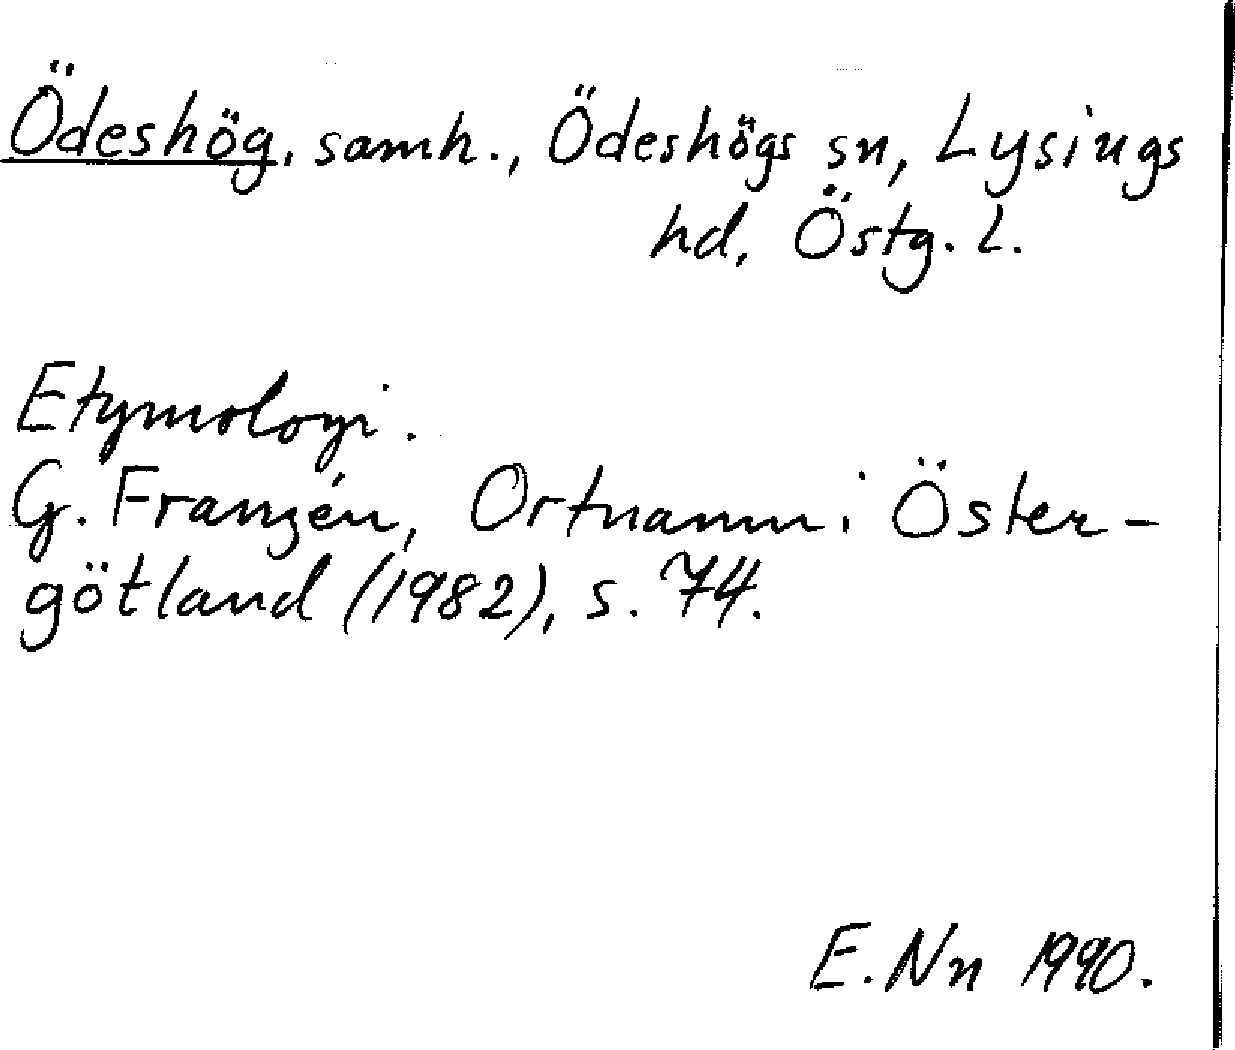 Ödeshög, samh., Ödeshögs sn, Lysings
hd, Östg. l.
Etymologi.
G. Franzén, Ortnamn i Öster-
götland (1982), s. 74.
E. Nn 1990.